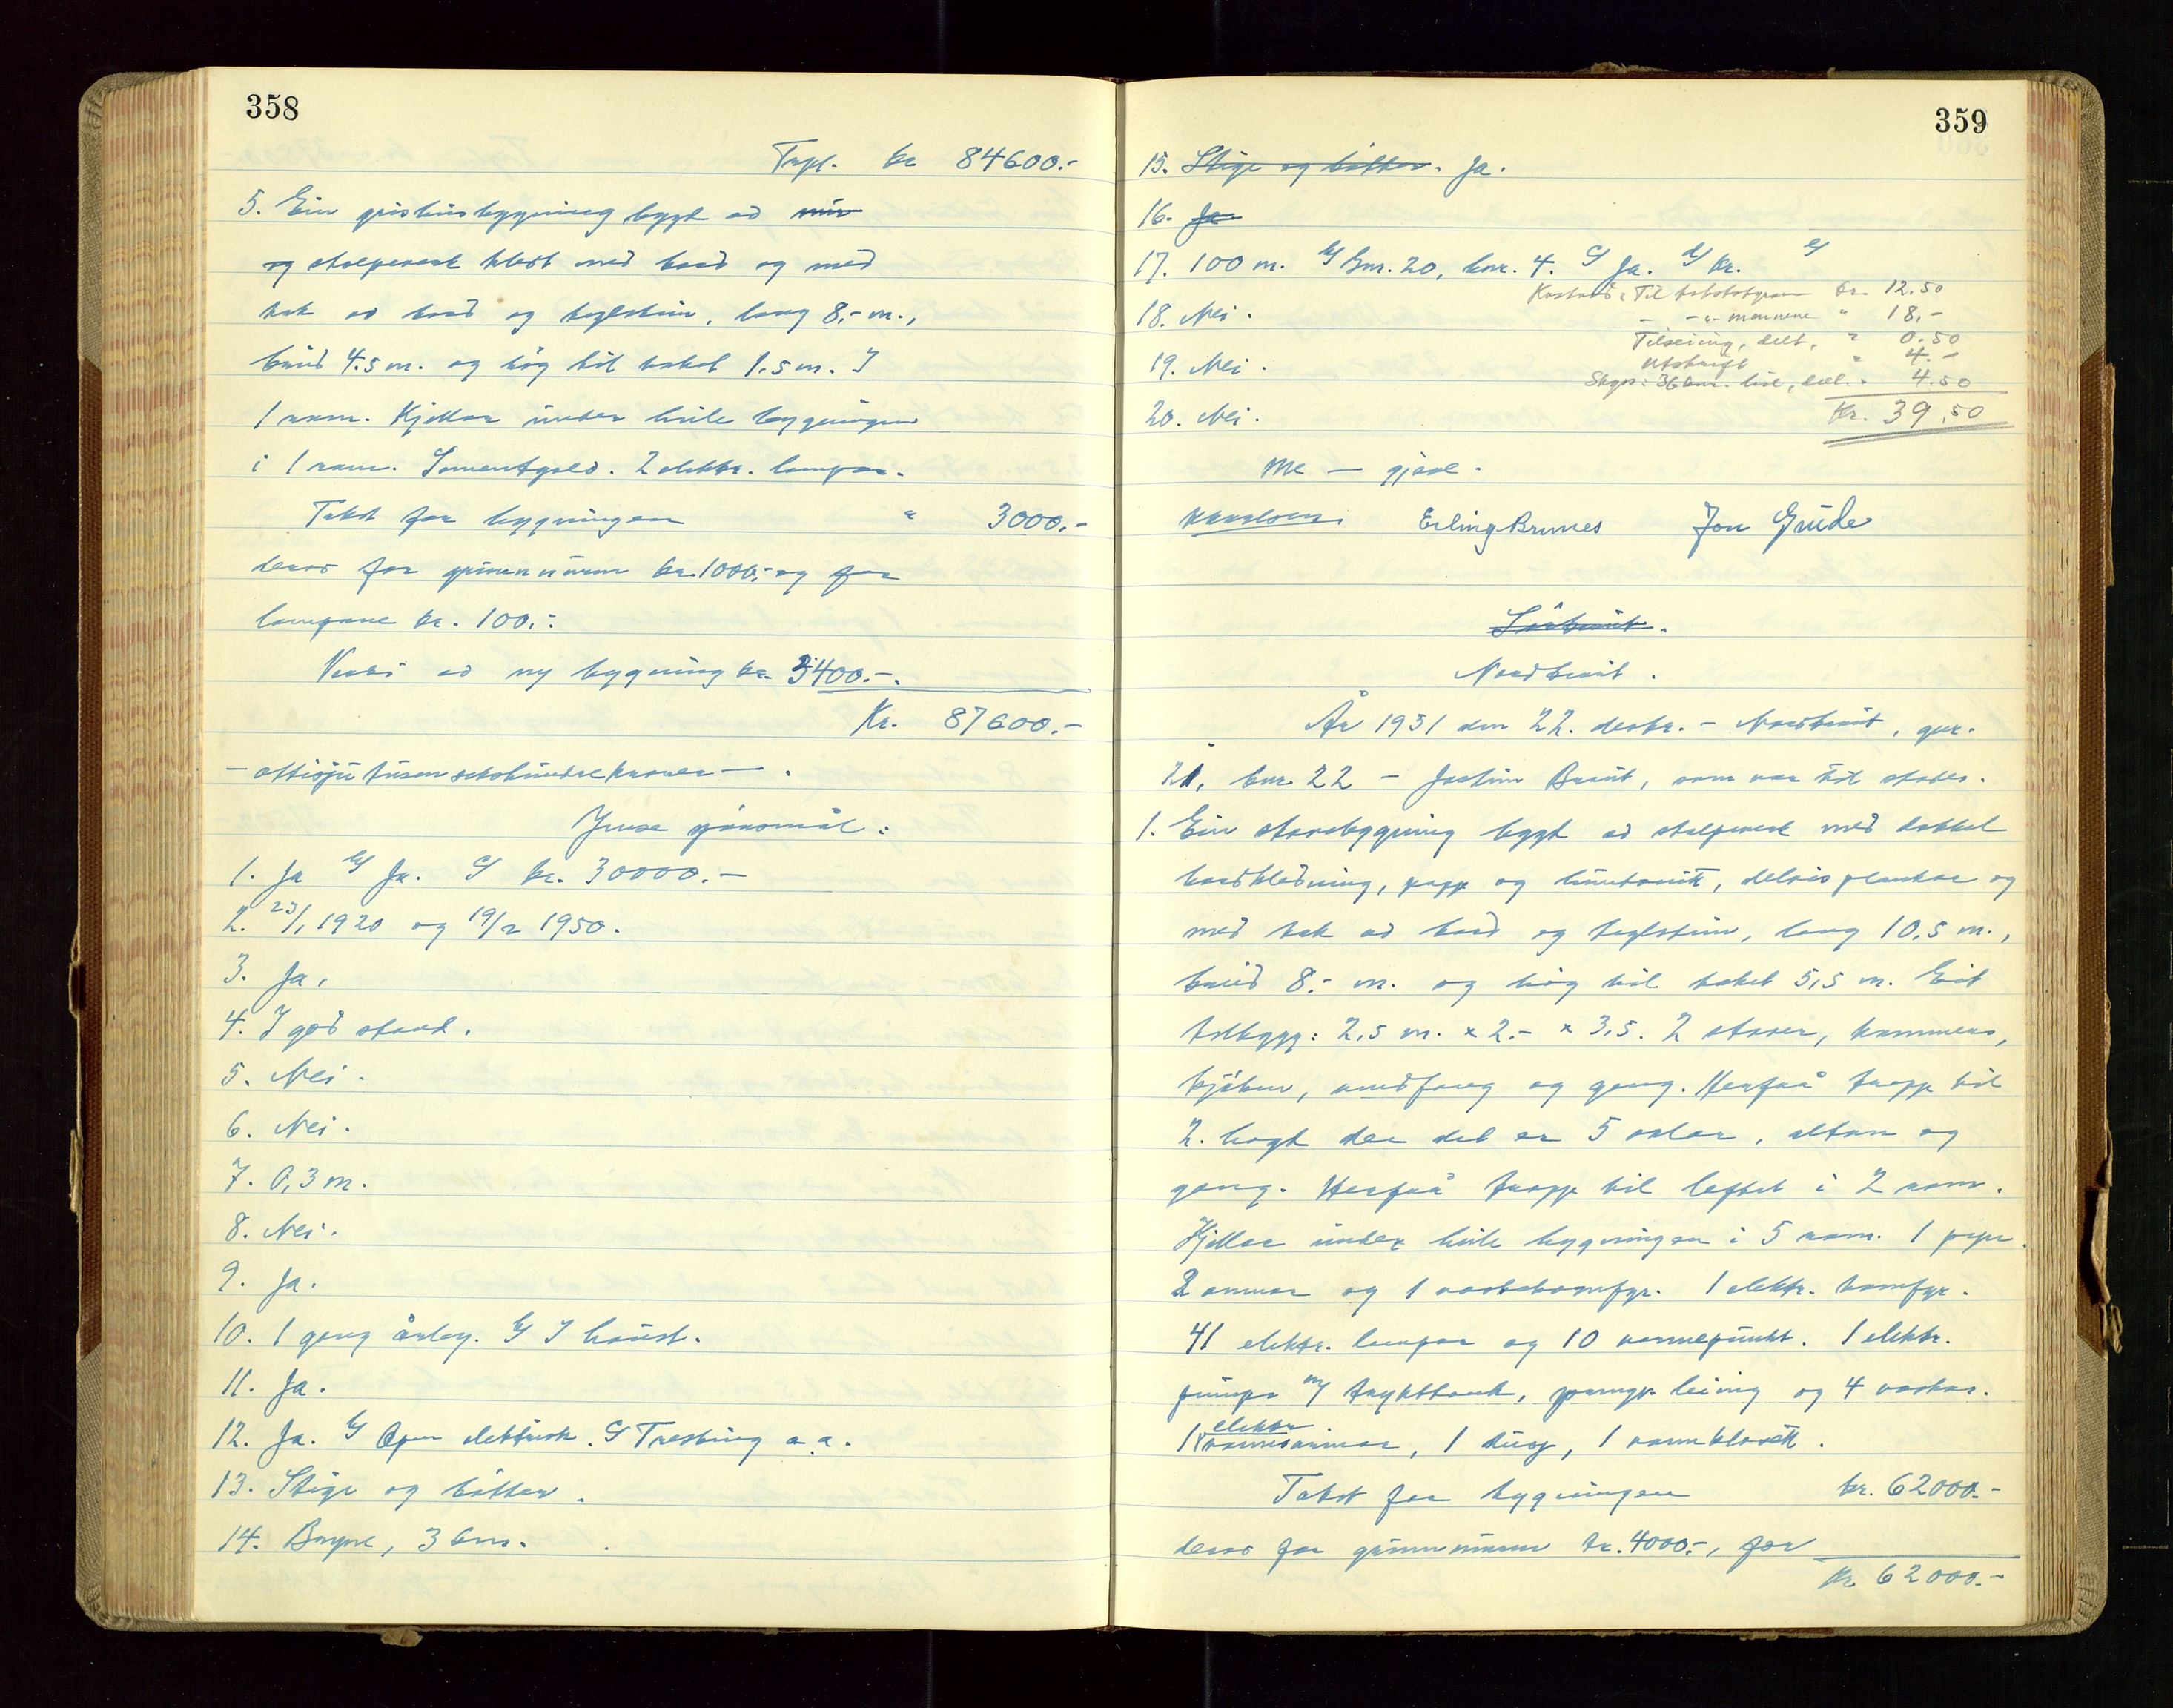 358
Tapt. kr 84600.-
5. Ein grishusbygning bygt ad mur
og stolpeverk kledt med bord og med
tak ad bord og teglstein, lang 8,- m.,
breid 4.5 m. og høg til taket 1,5 m. I
1 rom. Kjellar under heile bygningen
i 1 rom. Sementgolv. 2 elektr. lampor.
Takst for bygningen " 3000.-
derav for grunnmuren kr. 1000,- og for
lampone kr. 100.-
Verdi ad ny bygning kr. 3400.-.
Kr. 87600.-
- åttisjutusensekshundrekroner - .
Ymse spørsmål:
1. Ja b/ Ja. c/ kr. 30000.-
2. 23/1 1920 og 19/2 1950.
3. Ja.
4. I god stand.
5. Nei.
6. Nei.
7. 0,3 m.
8. Nei.
9. Ja.
10. 1 gong årleg. b/ I haust.
11. Ja.
12. Ja. b/ Open elektrisk. c/ Tresking a.a.
13. Stige og bøtter.
14. Bryne, 3 km.
359
15. Stige og bøtter. Ja.
16. Ja
17. 100 m. b/ Gnr. 20, bnr. 4. c/ Ja. d/ Kr. e/
Kostnad: Til takststyraren kr. 12.50
18. Nei.
- -"- mennene " 18,-
Tilseiing, delt, " 0.50
19. Nei.
Utskrift " 4.-
Skyss: 36 km. bil, del. " 4.50
20. Nei.
Kr. 39.50
Me - gjeve.
Karlsen Erling Brunes Jon Grude
Sørbraut.
Nordbraut.
År 1951 den 22. desbr. - Nordbraut, gnr.
21, bnr 22 - Jostein Braut, som var til stades.
1. Ein stovebygning bygt ad stolpeverk med dobbel
bordkledning, papp og huntonitt, delvis plankar og
med tak ad bord og teglstein, lang 10,5 m.,
breid 8.- m. og høg til taket 5,5 m. Eit
tilbygg: 2,5 m. x 2.- x 3,5. 2 stover, kammers,
kjøken, andfang og gang. Herfrå trapp til
2. høgd der det er 5 soler, altan og
gang. Herfrå trapp til loftet i 2 rom.
Kjellar under heile bygningen i 5 rom. 1 pipe.
2 omnar og 1 vaskekomfyr. 1 elektr. komfyr.
41 elektr. lampor og 10 varmepunkt. 1 elektr.
pumpe m/ trykktank, pumpeleiing og 4 vaskar.
1 elektr varmtvannar, 1 dusj, 1 vannklosett.
Takst for bygningen kr. 62000.-
derav for grunnmuren kr. 4000.-, for
Kr. 62000.-